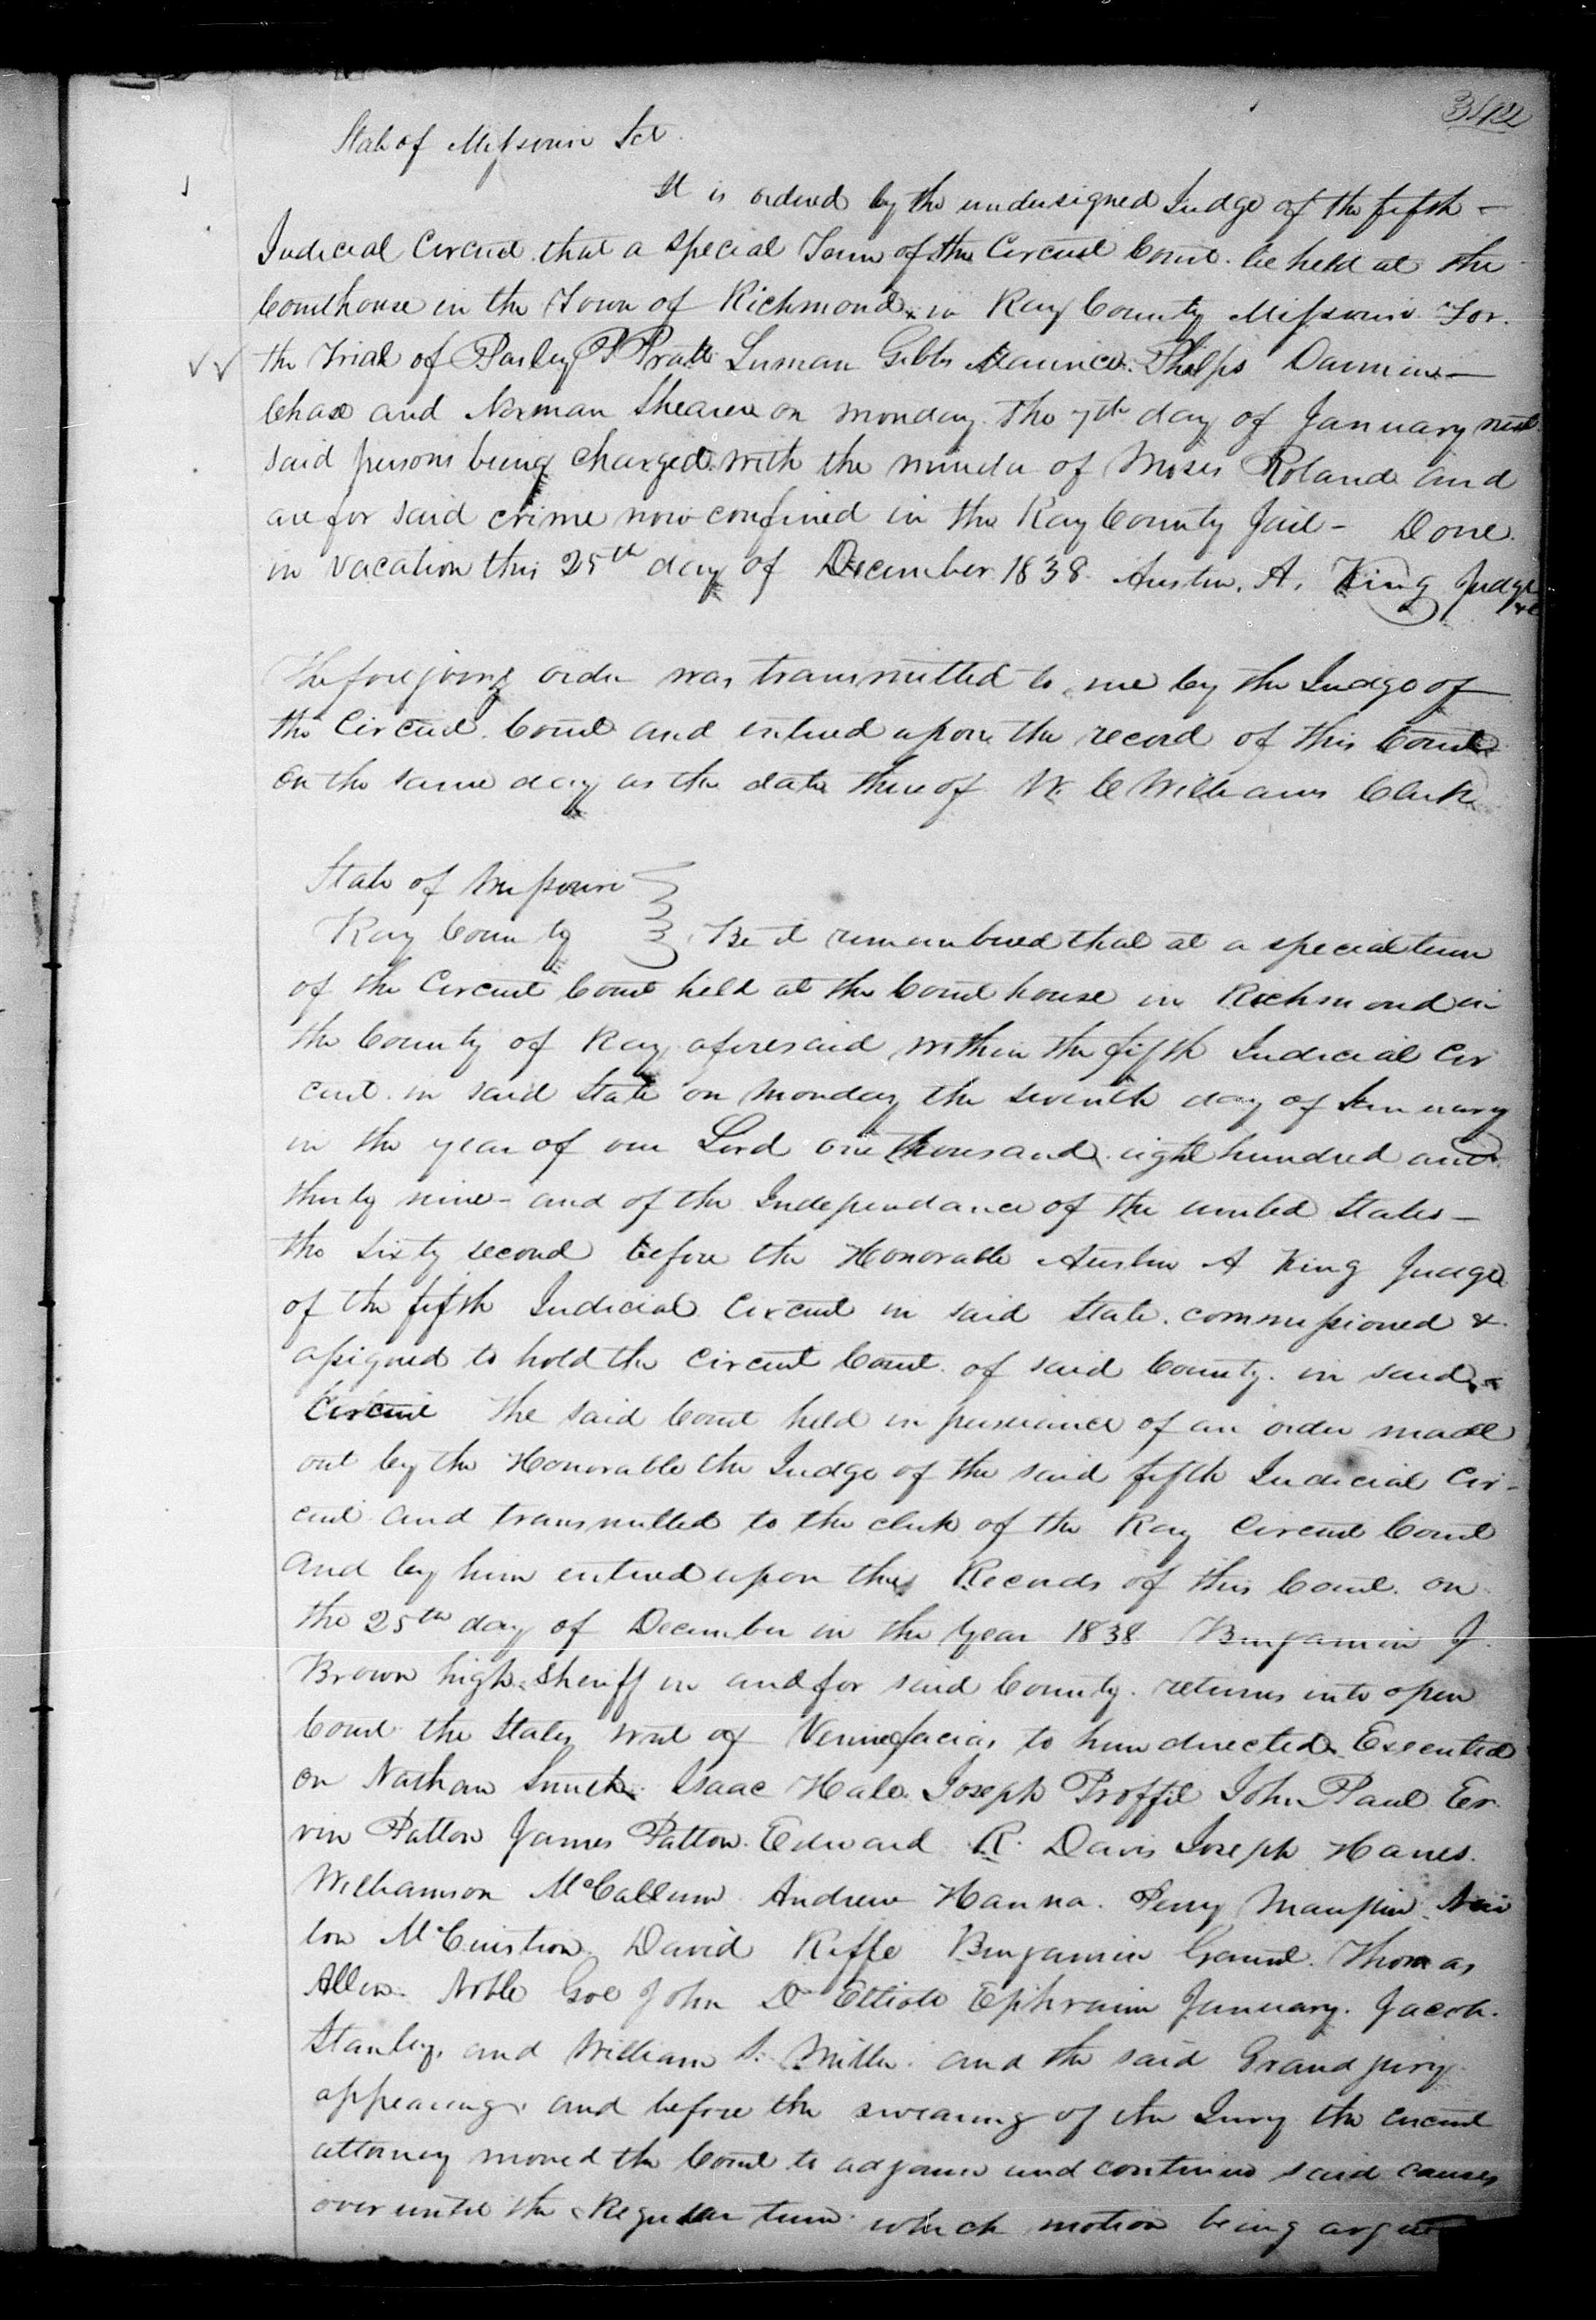 342
State of Missouri Sct.
It is ordered by the undersigned Judge of the fifth –
Judicial Circuit that a special Term of the Circuit Court. be held at the
Courthouse in the Town of Richmond, in Ray County Missouri For.
the Trial of Parley P Pratt Luman Gibbs Maurice Phelps Darwin –
Chase and Norman Shearer on monday the 7th day of January next
said persons being charged with the murder of Moses Roland and
are for said crime now confined in the Ray County Jail – Done.
in vacation this 25th day of December 1838. Austin. A. King Judge
&c
The foregoing order was transmitted to me by the Judge of
the Circuit Court and entered upon the record of this Court
on the same day as the date thereof W. C Williams Clerk
State of Missouri
Ray County } Be it remembered that at a special term
of the Circuit Court held at the Court house in Richmond in
the County of Ray aforesaid within the fifth Judicial Cir
cuit in said State on monday the seventh day of January
in the year of our Lord one thousand eight hundred and
thirty nine – and of the Independance of the united States –
the sixty second before the Honorable Austin A King Judge
of the fifth Judicial Circuit in said State. commissioned &
assigned to hold the Circuit Court of said County. in said
Circuit The said Court held in pursuance of an order made
out by the Honorable the Judge of the said fifth Judicial Cir-
cuit and transmitted to the clerk of the Ray Circuit Court
and by him entered upon the Records of this Court. on
the 25th day of December in the Year 1838 Benjamin J.
Brown high Sheriff in and for said County. returns into open
Court the States writ of Venirefacias to him directed Executed
on Nathan Smith Isaac Hale Joseph Proffit John Paul Er
vin Patton James Patton. Edward R. Davis Joseph Hanes.
Williamson McCallum Andrew Hanna. Perry Maupin
ton McCuistion David Riffe Benjamin Thomas
Allen. Noble Goe John D Elliott Ephraim January. Jacob.
Stanley, and William S. Miller. and the said Grand jury
appearing. and before the swearing of the Jury the circuit
attorney moved the Court to adjourn and continue said causes
over until the Regular term which motion being argued